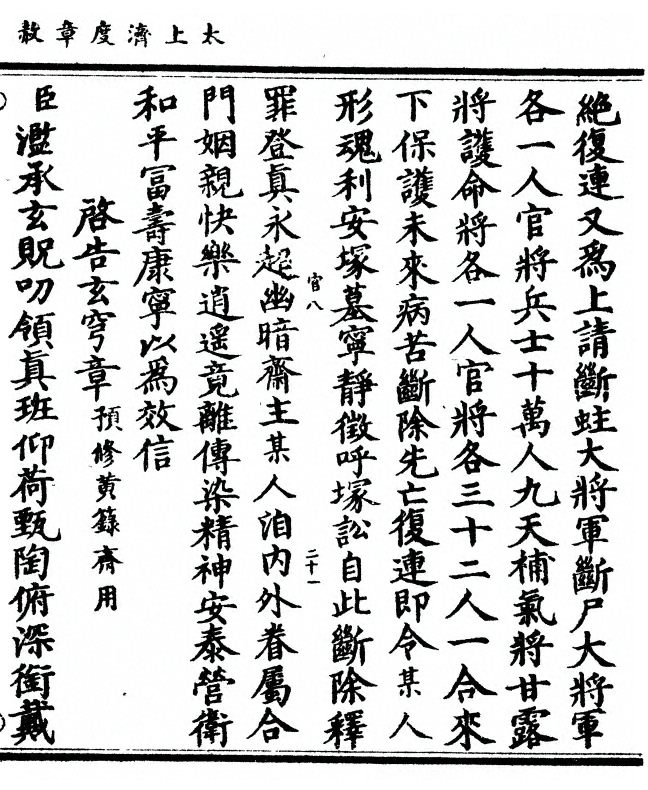 太上濟度章赦
絕復連又爲上請斷蛀大將軍斷尸大將軍
各一人官將兵士十萬人九天補氣將甘露
將護命將各一人官將各三十二人一合來
下保護未來病苦斷除先亡復連即令某人
形魂利安塚墓寧靜徵呼塚訟自此斷除釋
官八
二十一
罪登眞永超幽暗齋主某人洎内外眷屬合
門姻親快樂逍遥竟離傳染精神安泰營衛
和平冨壽康寧以爲效信
啓告玄穹章預修黄籙齋用
臣濫承玄貺叨領真班仰荷甄陶俯深銜戴